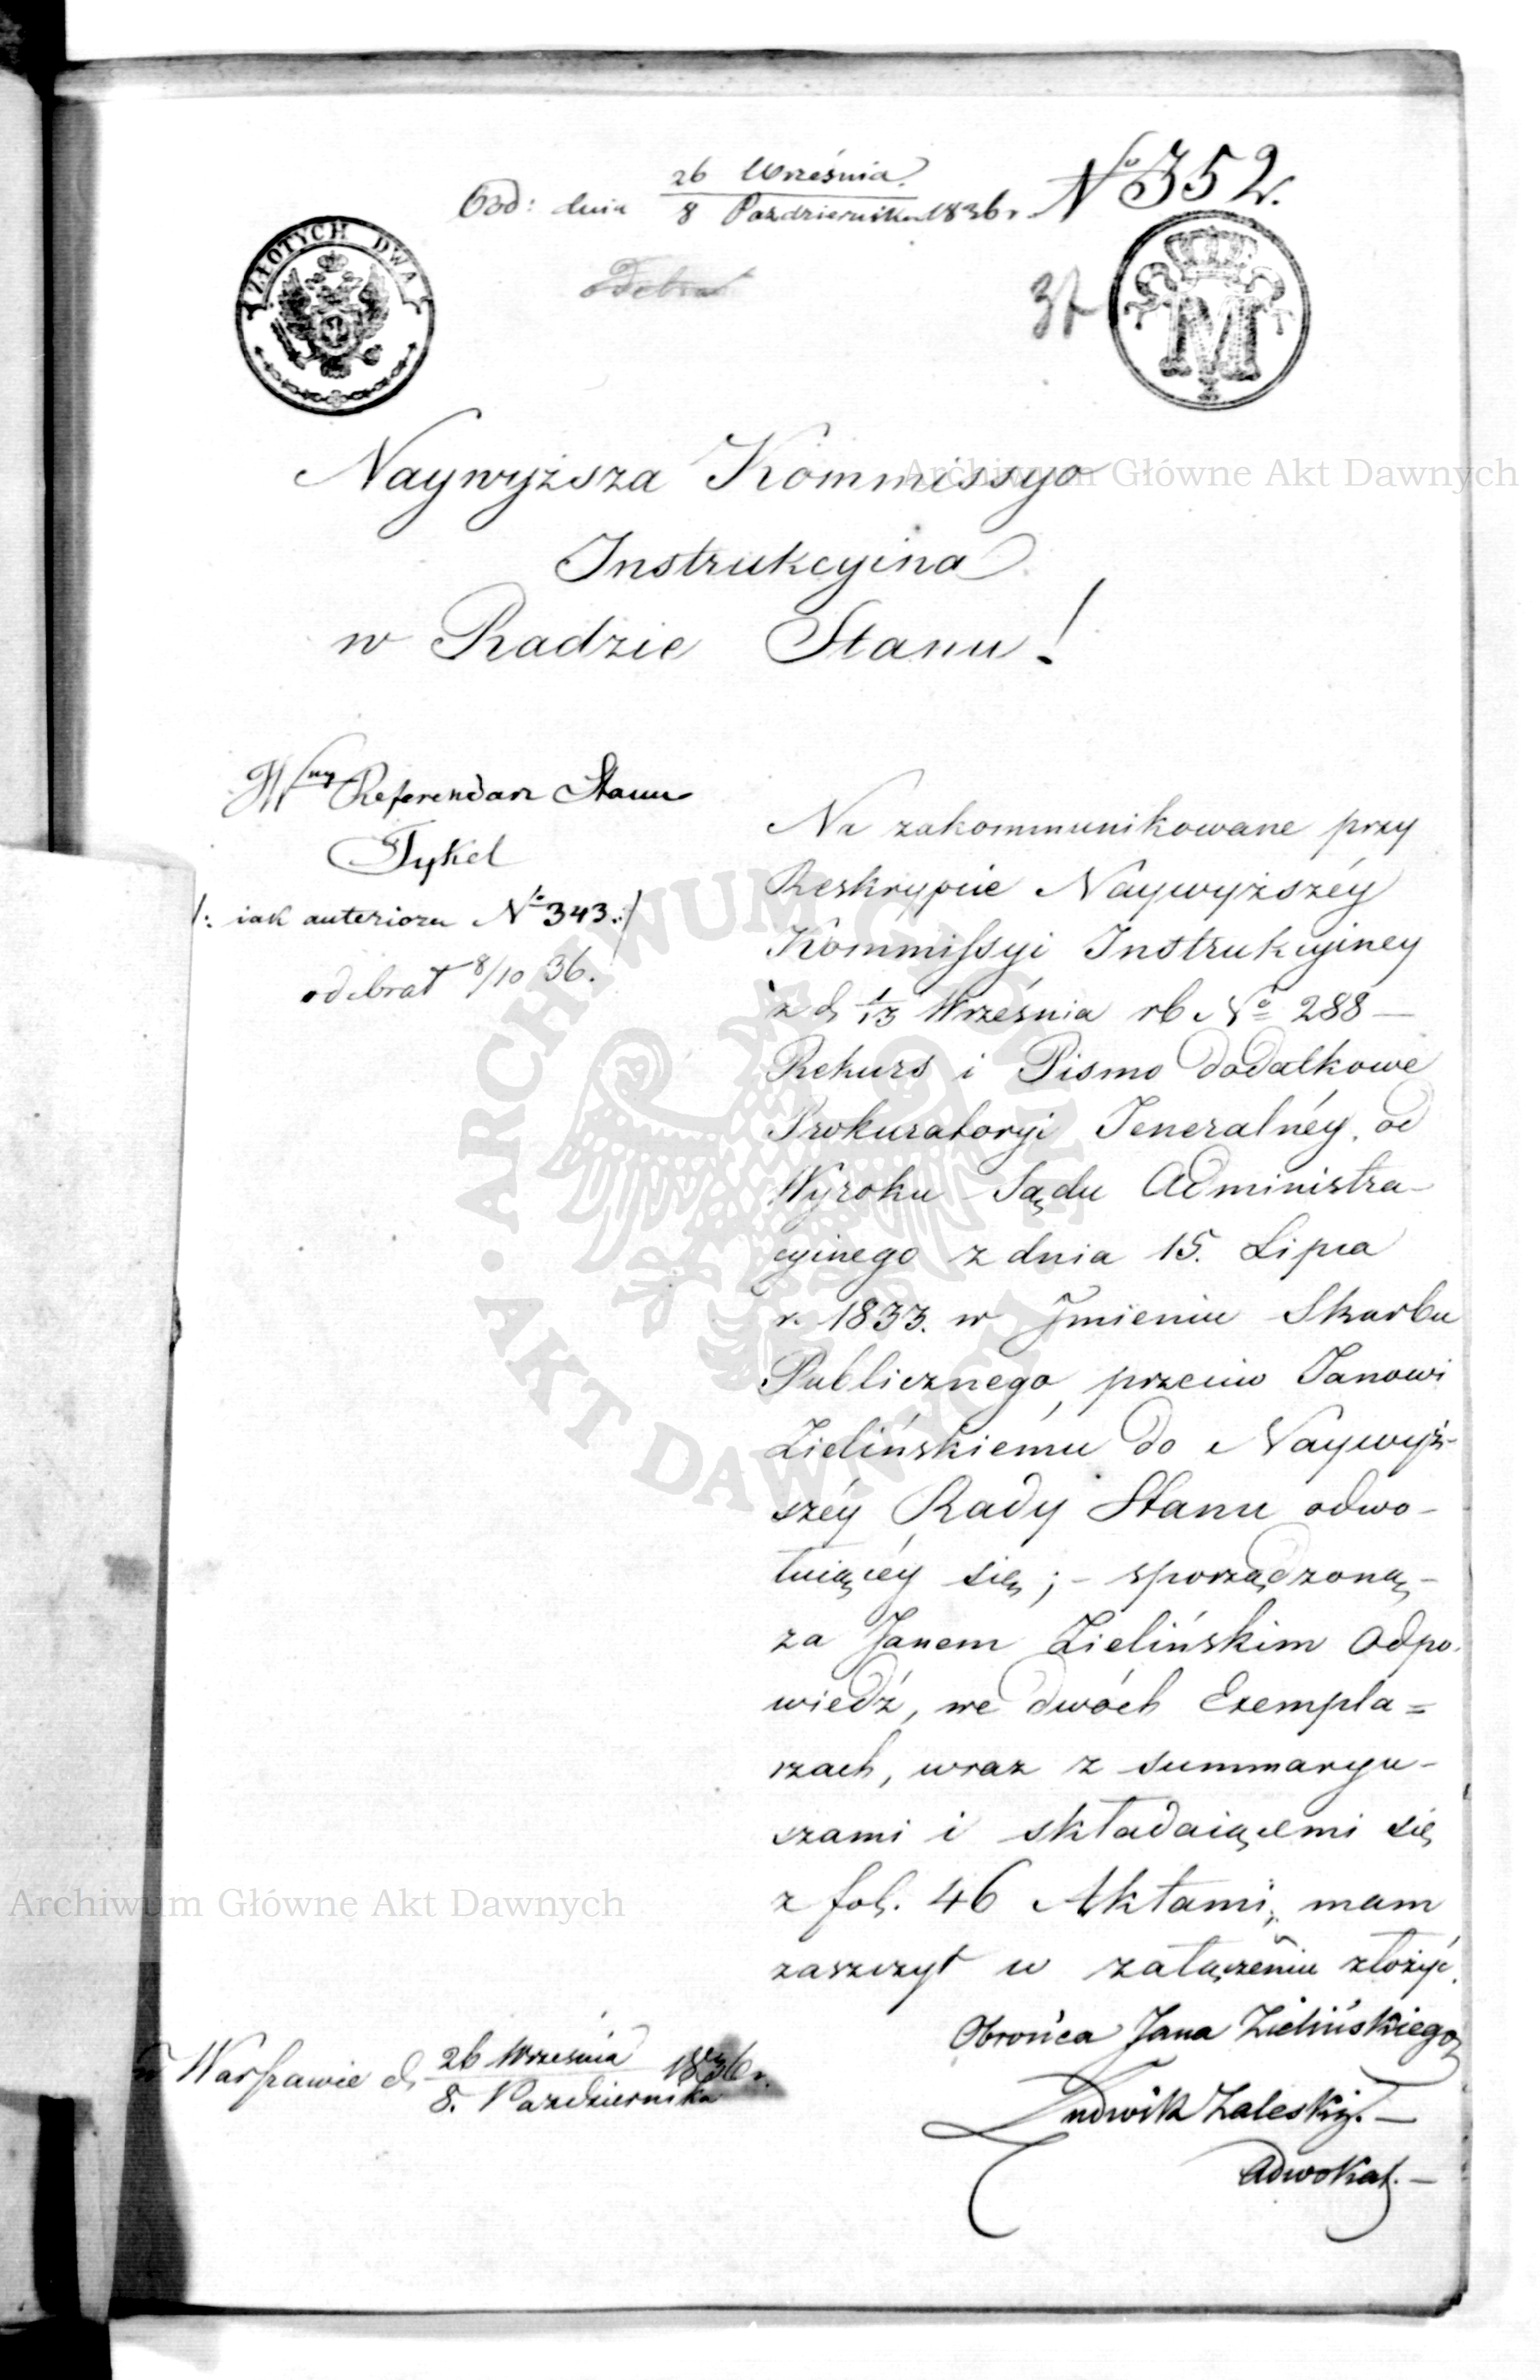 Odd: dnia 26 Września / 8 Października 1836 r. No 352.
ZŁOTYCH DWA
M
Naywyższa Kommissya
Instrukcyina
w Radzie Stanu!
Wny Referendarz Stanu
Tykel
/: iak anteriora No 343.:/
odebrał 8/10 36.
Na zakommunikowane przy
Reskrypcie Naywyższéy
Kommissyi Instrukcyiney
z d. 1/13 Września rb No 288 —
Rekurs i Pismo dodatkowe
Prokuratoryi Jeneralnéy, od
Wyroku Sądu Administra-
cyinego z dnia 15. Lipca
r. 1833. w Jmieniu Skarbu
Publicznego, przeciw Janowi
Zielińskiému do Naywyż-
széy Rady Stanu odwo-
łuiącéy się; - sporządzoną -
za Janem Zielińskim Odpo-
wiedź, we dwóch Exempla=
rzach, wraz z summaryu-
szami i składaiącemi się
z fol. 46 Aktami, mam
zaszczyt w załączeniu złożyć.
Obrońca Jana Zielińskiego
Ludwik Zaleski. —
Adwokat. —
w Warszawie d. 26 Września / 8. Października 1836 r.
Archiwum Główne Akt Dawnych
Archiwum Główne Akt Dawnych
ARCHIWUM GŁÓWNE • AKT DAWNYCH •